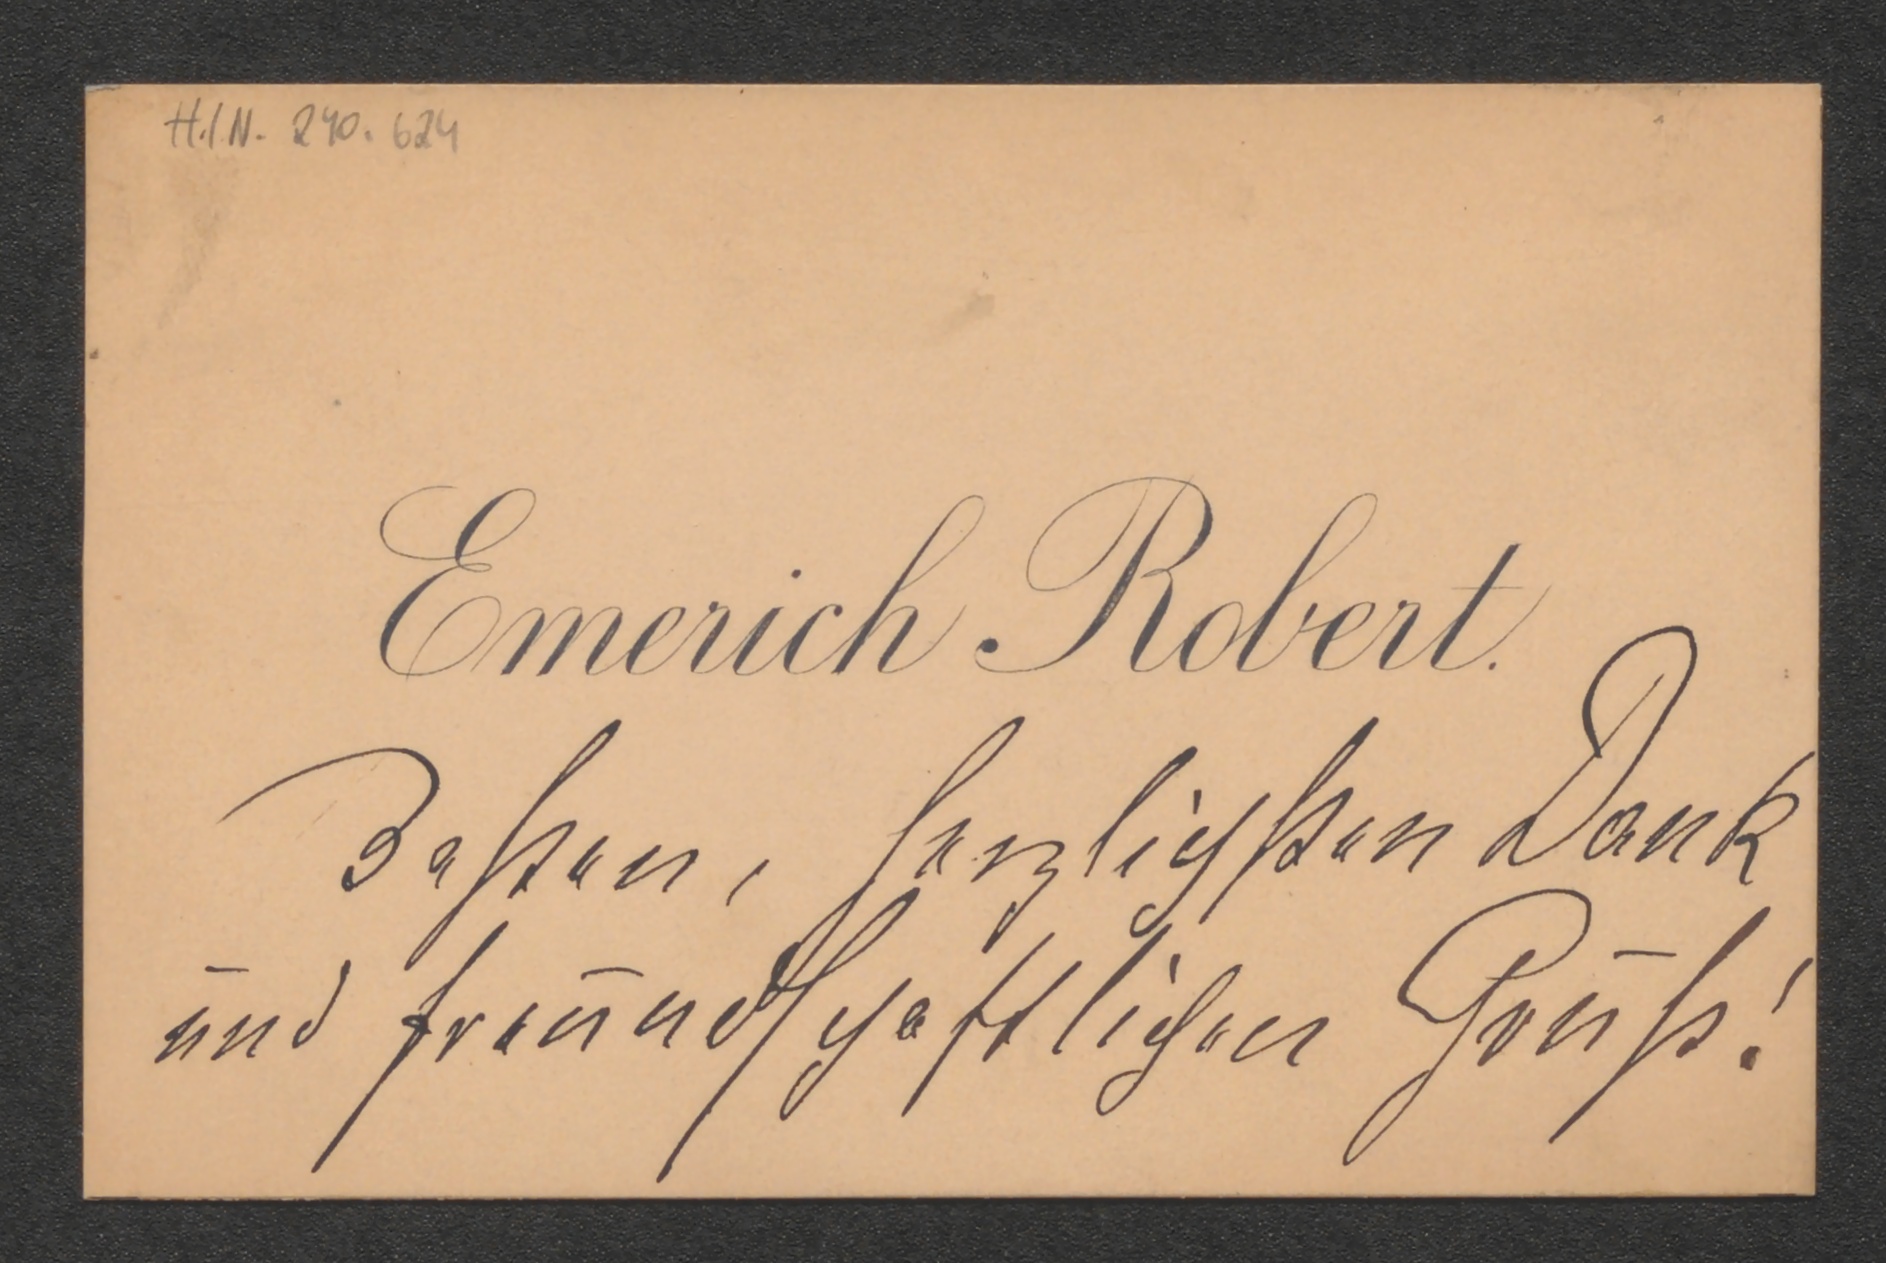 H.I.N. 240.624
Emerich Robert.
Besten, herzlichsten Dank
und freundschaftlichen Gruß!